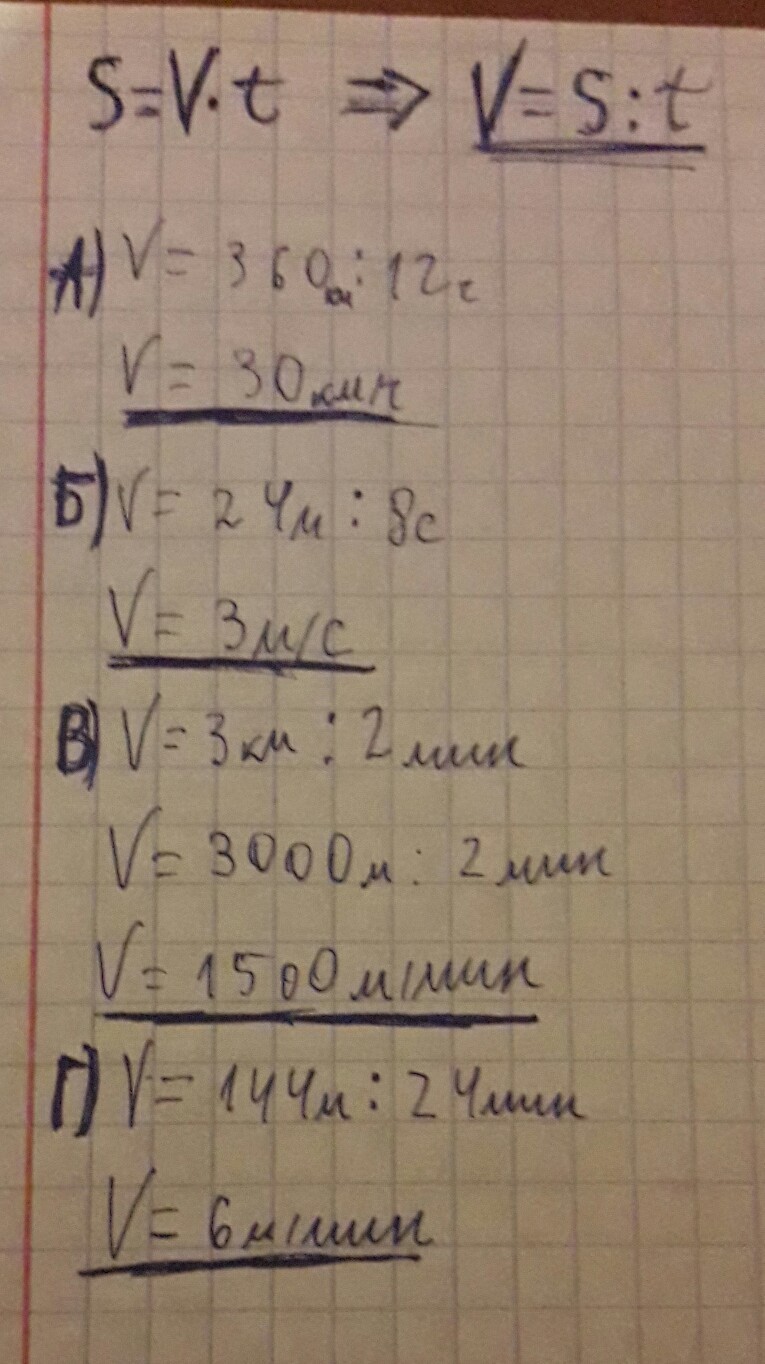 S=V·t ⇒ V=S:t
А) V= 360км:12ч
V= 30км/ч
Б) V= 24м : 8с
V= 3м/с
В) V= 3км : 2мин
V= 3000м : 2мин
V= 1500м/мин
Г) V= 144м : 24мин
V= 6м/мин